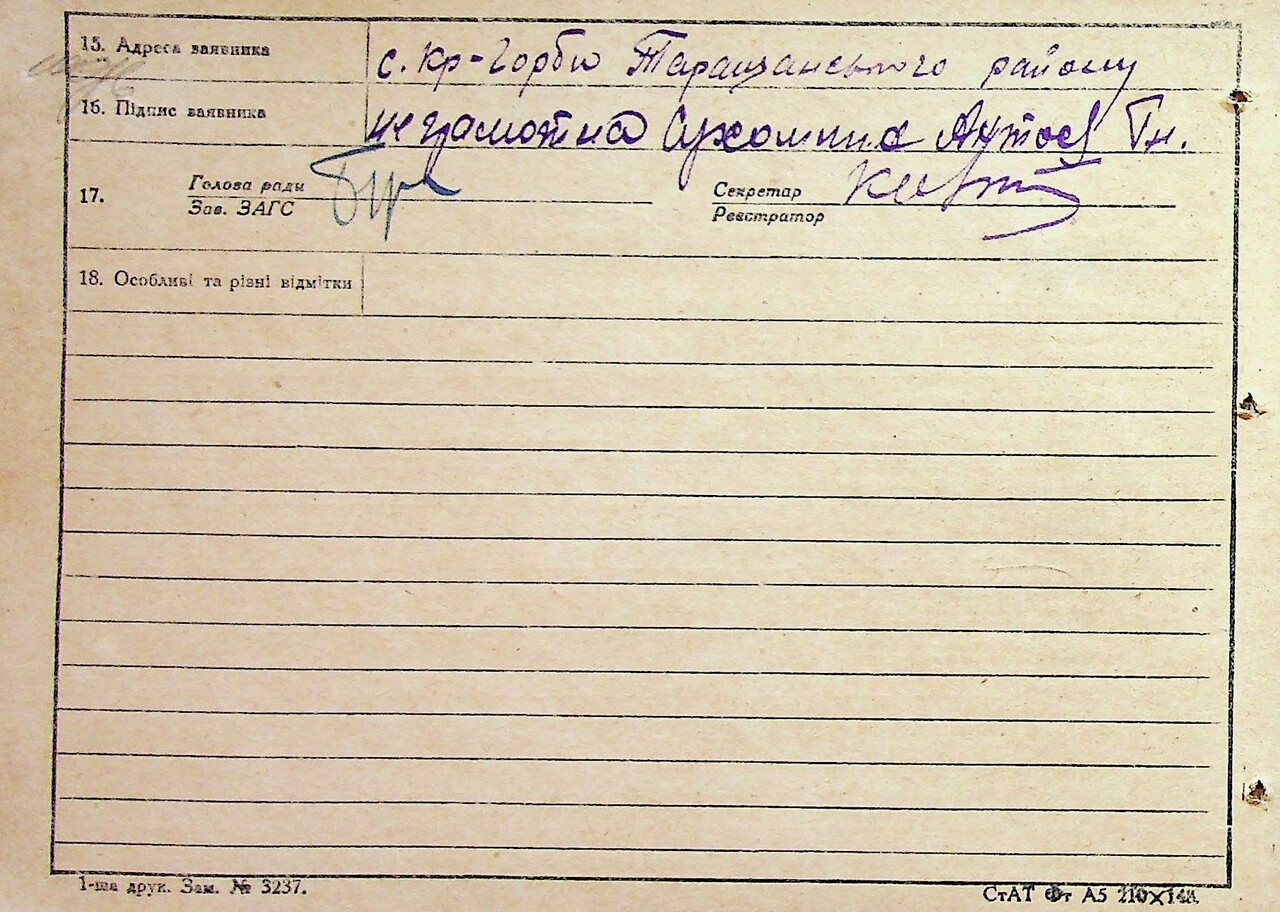 15. Адреса заявника с. Кр-Горби Таращанського району
16. Підпис заявника неграмотна Сухомлин Гн.
17. Голова ради Секретар
Зав. ЗАГС Реєстратор
18. Особливі та різні відмітки
1-ша друк. Зам. № 3237. СтАТ Фт А5 210×148.